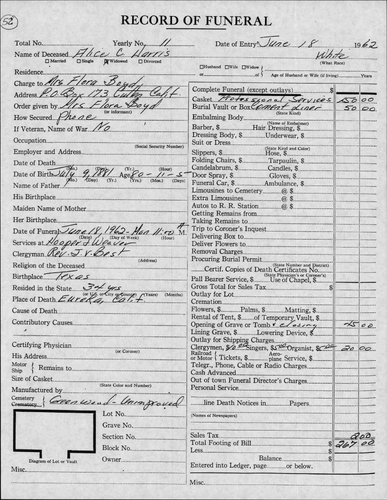 52
RECORD OF FUNERAL
Total No. Yearly No. 11 Date of Entry June 18 1962
Name of Deceased Alice C Harris White
(What Race)
Married Single Widowed Divorced Husband Wife Widow of
Residence Age of Husband or Wife (if living) Years
Charge to Mrs Flora Boyd
Address P.O. Box 173 Calif
Order given by Mrs Flora Boyd
How Secured Phone
If Veteran, Name of War No
Occupation
(Social Security Number)
Employer and Address
Date of Death
Date of Birth July 9, 1881 Age 80-11-5
Name of Father
His Birthplace
Maiden Name of Mother
Her Birthplace
Date of Funeral June 18, 1962 - Mon 11:00 A M.
Services at Hooper & Weaver
Clergyman Rev. J.V. Best
Religion of the Deceased
Birthplace Texas
Resided in the State 34 yrs
Place of Death Eureka, Calif
Cause of Death
Contributory Causes
Certifying Physician
(or Coroner)
His Address
Motor Ship Remains to
Size of Casket
(State Color and Number)
Manufactured by
Cemetery Crematory Greenwood - Unimproved
Lot No.
Grave No.
Section No.
Block No.
Owner
Diagram of Lot or Vault
Misc.
Complete Funeral (except outlays) $
Casket Professional Services 150 00
Burial Vault or Box Cement liner 50 00
(State Kind)
Embalming Body
(Name of Embalmer)
Barber, $ Hair Dressing, $
Dressing Body, $ Underwear, $
Suit or Dress
(State Kind and Color)
Slippers, $ Hose, $
Folding Chairs, $ Tarpaulin, $
Candelabrum, $ Candles, $
Door Spray, $ Gloves, $
Funeral Car, $ Ambulance, $
Limousines to Cemetery @ $
Extra Limousines @ $
Autos to R. R. Station @ $
Getting Remains from
Taking Remains to
Trip to Coroner's Inquest
Delivering Box to
Deliver Flowers to
Removal Charges
Procuring Burial Permit
(State Number and District)
Certif. Copies of Death Certificates No.
(State Physician's or Coroner's)
Pall Bearer Service Use of Chapel, $
Gross Total for Sales Tax $
Outlay for Lot
Cremation
Flowers, $ Palms, $ Matting, $
Rental of Tent, $ of Temporary Vault, $
Opening of Grave or Tomb & closing 45 00
Lining Grave, $ Lowering Device, $
Outlay for Shipping Charges
Clergymen, $ Singers, $ Organist, $ 20 00
Railroad Motor Tickets, $ Aeroplane Service, $
Telegr., Phone, Cable or Radio Charges
Cash Advanced
Out of town Funeral Director's Charges
Personal Service
line Death Notices in Papers
(Names of Newspapers)
Sales Tax 2 00
Total Footing of Bill $ 267 00
Less
Balance $
Entered into Ledger, page or below.
Misc.